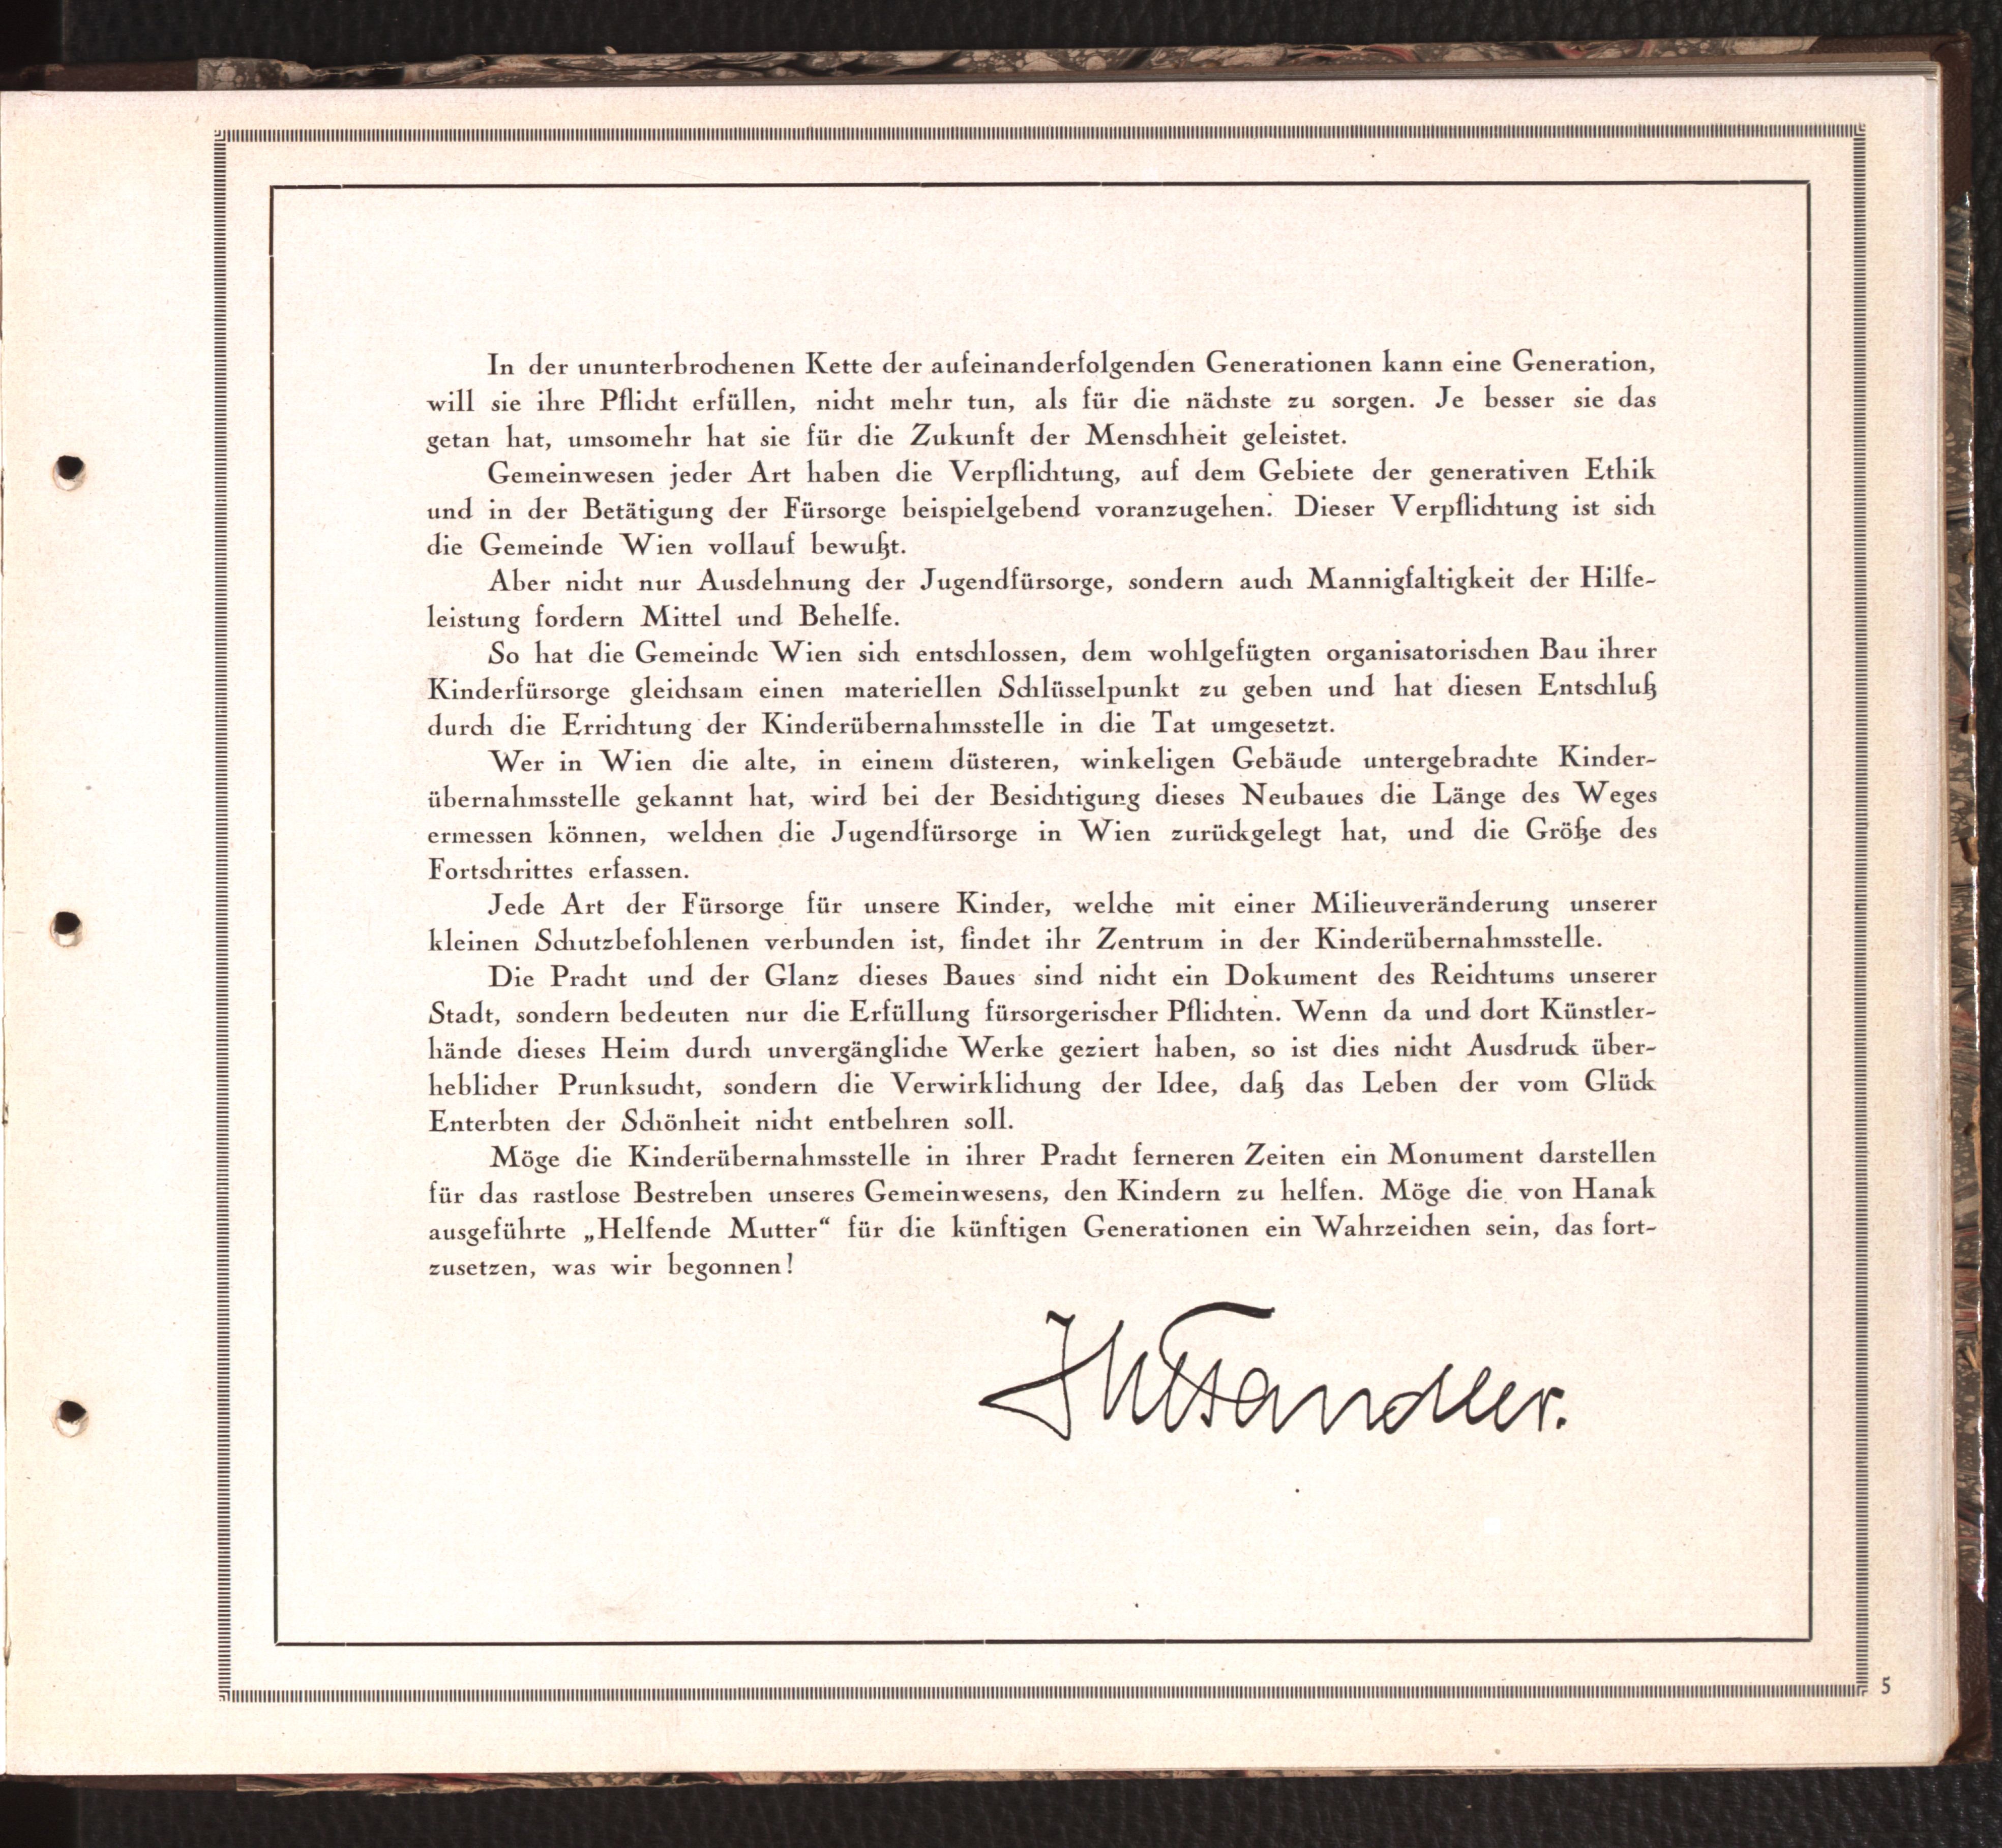 In der ununterbrochenen Kette der aufeinanderfolgenden Generationen kann eine Generation,
will sie ihre Pflicht erfüllen, nicht mehr tun, als für die nächste zu sorgen. Je besser sie das
getan hat, umsomehr hat sie für die Zukunft der Menschheit geleistet.
Gemeinwesen jeder Art haben die Verpflichtung, auf dem Gebiete der generativen Ethik
und in der Betätigung der Fürsorge beispielgebend voranzugehen. Dieser Verpflichtung ist sich
die Gemeinde Wien vollauf bewußt.
Aber nicht nur Ausdehnung der Jugendfürsorge, sondern auch Mannigfaltigkeit der Hilfe-
leistung fordern Mittel und Behelfe.
So hat die Gemeinde Wien sich entschlossen, dem wohlgefügten organisatorischen Bau ihrer
Kinderfürsorge gleichsam einen materiellen Schlüsselpunkt zu geben und hat diesen Entschluß
durch die Errichtung der Kinderübernahmsstelle in die Tat umgesetzt.
Wer in Wien die alte, in einem düsteren, winkeligen Gebäude untergebrachte Kinder-
übernahmsstelle gekannt hat, wird bei der Besichtigung dieses Neubaues die Länge des Weges
ermessen können, welchen die Jugendfürsorge in Wien zurückgelegt hat, und die Größe des
Fortschrittes erfassen.
Jede Art der Fürsorge für unsere Kinder, welche mit einer Milieuveränderung unserer
kleinen Schutzbefohlenen verbunden ist, findet ihr Zentrum in der Kinderübernahmsstelle.
Die Pracht und der Glanz dieses Baues sind nicht ein Dokument des Reichtums unserer
Stadt, sondern bedeuten nur die Erfüllung fürsorgerischer Pflichten. Wenn da und dort Künstler-
hände dieses Heim durch unvergängliche Werke geziert haben, so ist dies nicht Ausdruck über-
heblicher Prunksucht, sondern die Verwirklichung der Idee, daß das Leben der vom Glück
Enterbten der Schönheit nicht entbehren soll.
Möge die Kinderübernahmsstelle in ihrer Pracht ferneren Zeiten ein Monument darstellen
für das rastlose Bestreben unseres Gemeinwesens, den Kindern zu helfen. Möge die von Hanak
ausgeführte „Helfende Mutter“ für die künftigen Generationen ein Wahrzeichen sein, das fort-
zusetzen, was wir begonnen!
Tandler.
5